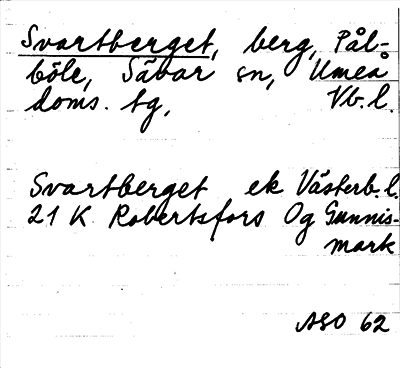 Svartberget, berg, Pål-
böle, Sävar sn, Umeå
doms. tg, Vb. l.
Svartberget ek Västerb. l.
21 K Robertsfors Og Gunnis-
mark
ASO 62